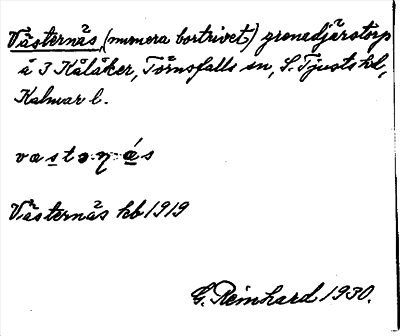 Västernäs, (numera bortrivet) grenadjärstorp
å 3 Kålåker, Törnsfalls sn, S. Tjusts hd,
Kalmar l.
Västernäs hb 1919
G. Reinhard 1930.